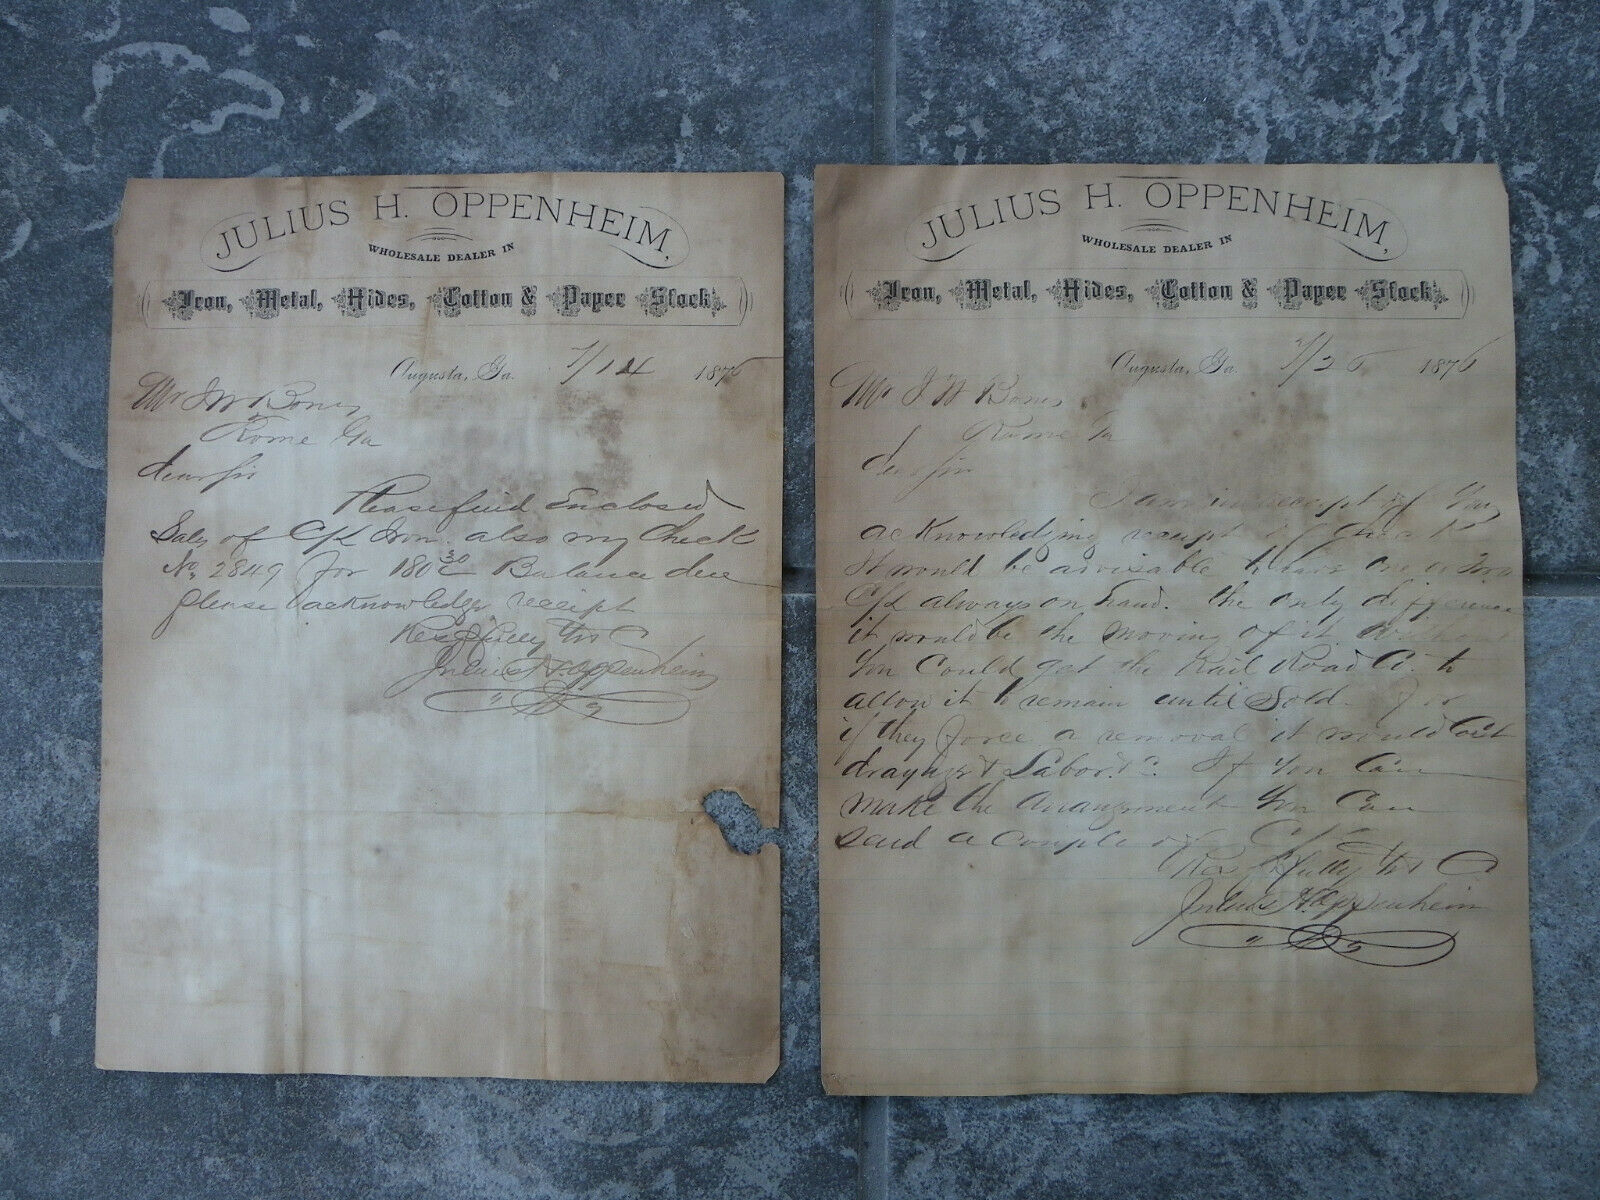 JULIUS H. OPPENHEIM,
WHOLESALE DEALER IN
Iron, Metal, Hides, Cotton & Paper Stock.
Augusta, Ga. 7/14 1876
Mr J W Bones
Rome Ga
dear sir
Please find Enclosed
Sales of C/L Iron also my Check
No, 2849 for 180 30/c Balance due
please acknowledge receipt
Respfully Yrs
Julius H. Oppenheim
JULIUS H. OPPENHEIM,
WHOLESALE DEALER IN
Iron, Metal, Hides, Cotton & Paper Stock.
Augusta, Ga. 7/26 1876
Mr J W Bones
Rome Ga
dear sir
I am in receipt of Yours
acknowledging receipt of
It would be advisable to have one or two
C/L always on hand. the only difference
it would be the moving of it without
You Could get the Rail Road Co. to
allow it to remain until Sold. for
if they force a removal it would Cost
drayage & Labor. If You Can
make the Arrangement You Can
send a couple of C/L
Respfully Yrs
Julius H. Oppenheim